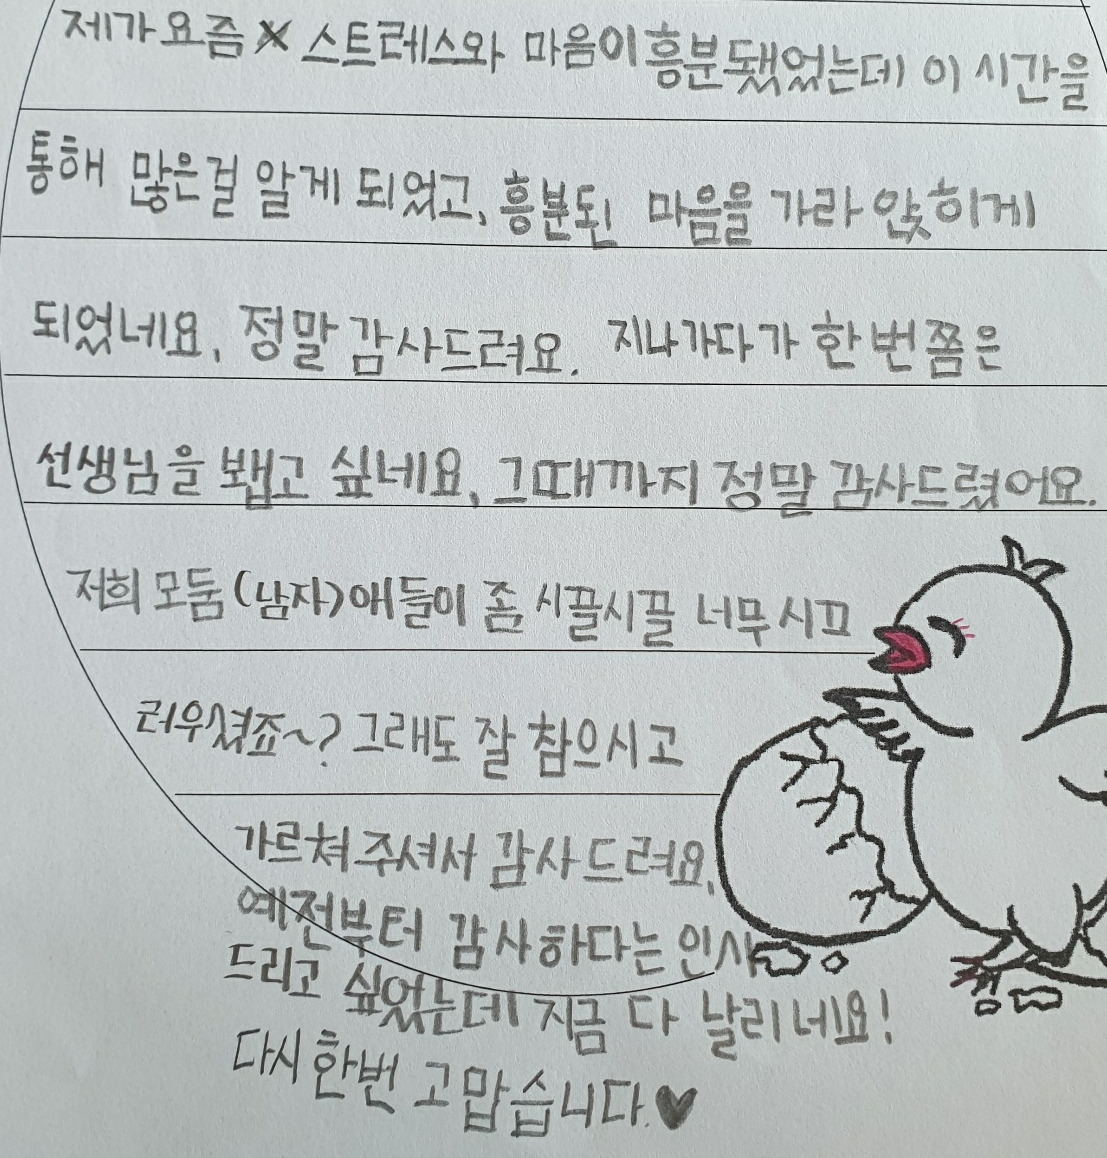 제가 요즘 스트레스와 마음이 흥분됐었는데 이 시간을
통해 많은걸 알게 되었고, 흥분된 마음을 가라 앉히게
되었네요, 정말 감사드려요. 지나가다가 한 번쯤은
선생님을 뵙고 싶네요, 그때까지 정말 감사드렸어요.
저희 모둠(남자)애들이 좀 시끌시끌 너무 시끄
러우셨죠~? 그래도 잘 참으시고
가르쳐 주셔서 감사드려요,
예전부터 감사하다는 인사
드리고 싶었는데 지금 다 날리네요!
다시 한번 고맙습니다.♥